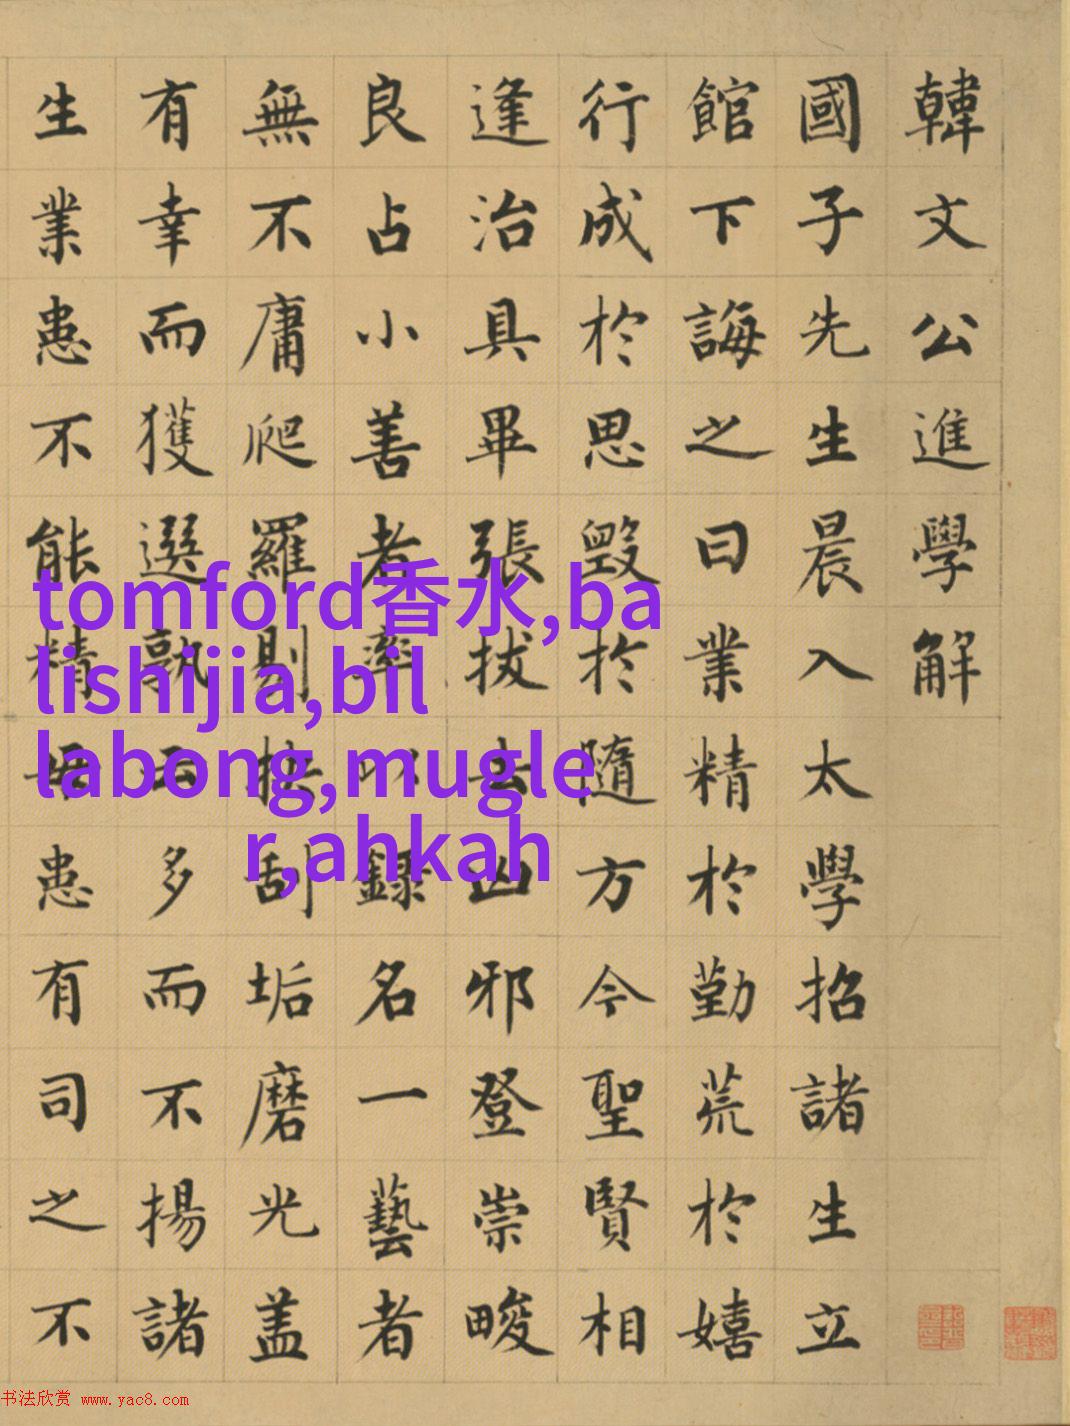 韓文公進學解
國子先生晨入太學招諸生立
館下誨之曰業精於勤荒於嬉
行成於思毀於隨方今聖賢相
逢治具畢張拔去凶邪登崇畯
良占小善者率以錄名一藝者
無不庸爬羅剔抉刮垢磨光盖
有幸而獲選孰云多而不揚諸
生業患不能精毋患有司之不
tomford香水,ba
lishijia,bil
labong,mugle
r,ahkah
书法欣赏 www.yac8.com